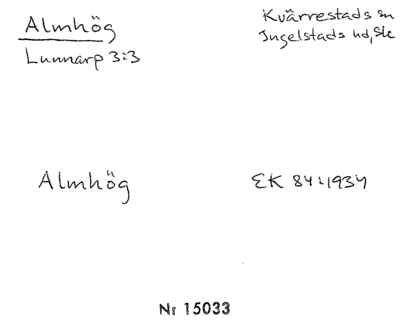 Almhög
Lunnarp 3:3
Kvärrestads sn
Ingelstads hd, Sk
Almhög
EK 84:1934
Nr 15033